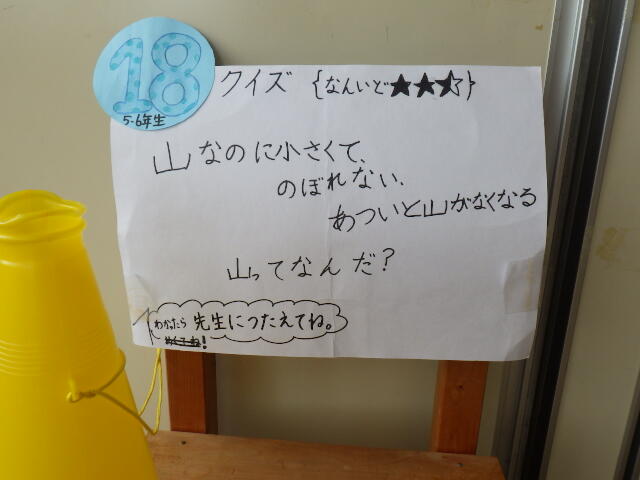 18
5-6年生
クイズ {なんいど★★⯪}
山なのに小さくて、
のぼれない、
あついと山がなくなる
山ってなんだ?
わかったら 先生につたえてね。
めくてね!